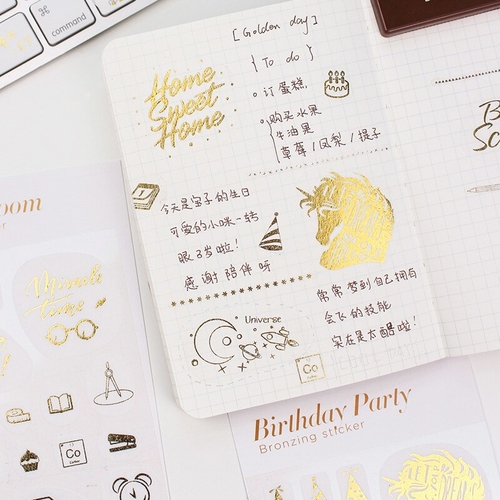 control
option
⌘
command
[Golden day]
{To do}
Home
Sweet
Home
订蛋糕
购买水果
牛油果
草莓 / 凤梨 / 提子
今天是宝子的生日
可爱的小咪一转
眼3岁啦!
感谢陪伴呀
常常梦到自己拥有
会飞的技能
实在是太酷啦!
Universe
Co
oom
time
Co
Birthday Party
Bronzing sticker
B
Sc